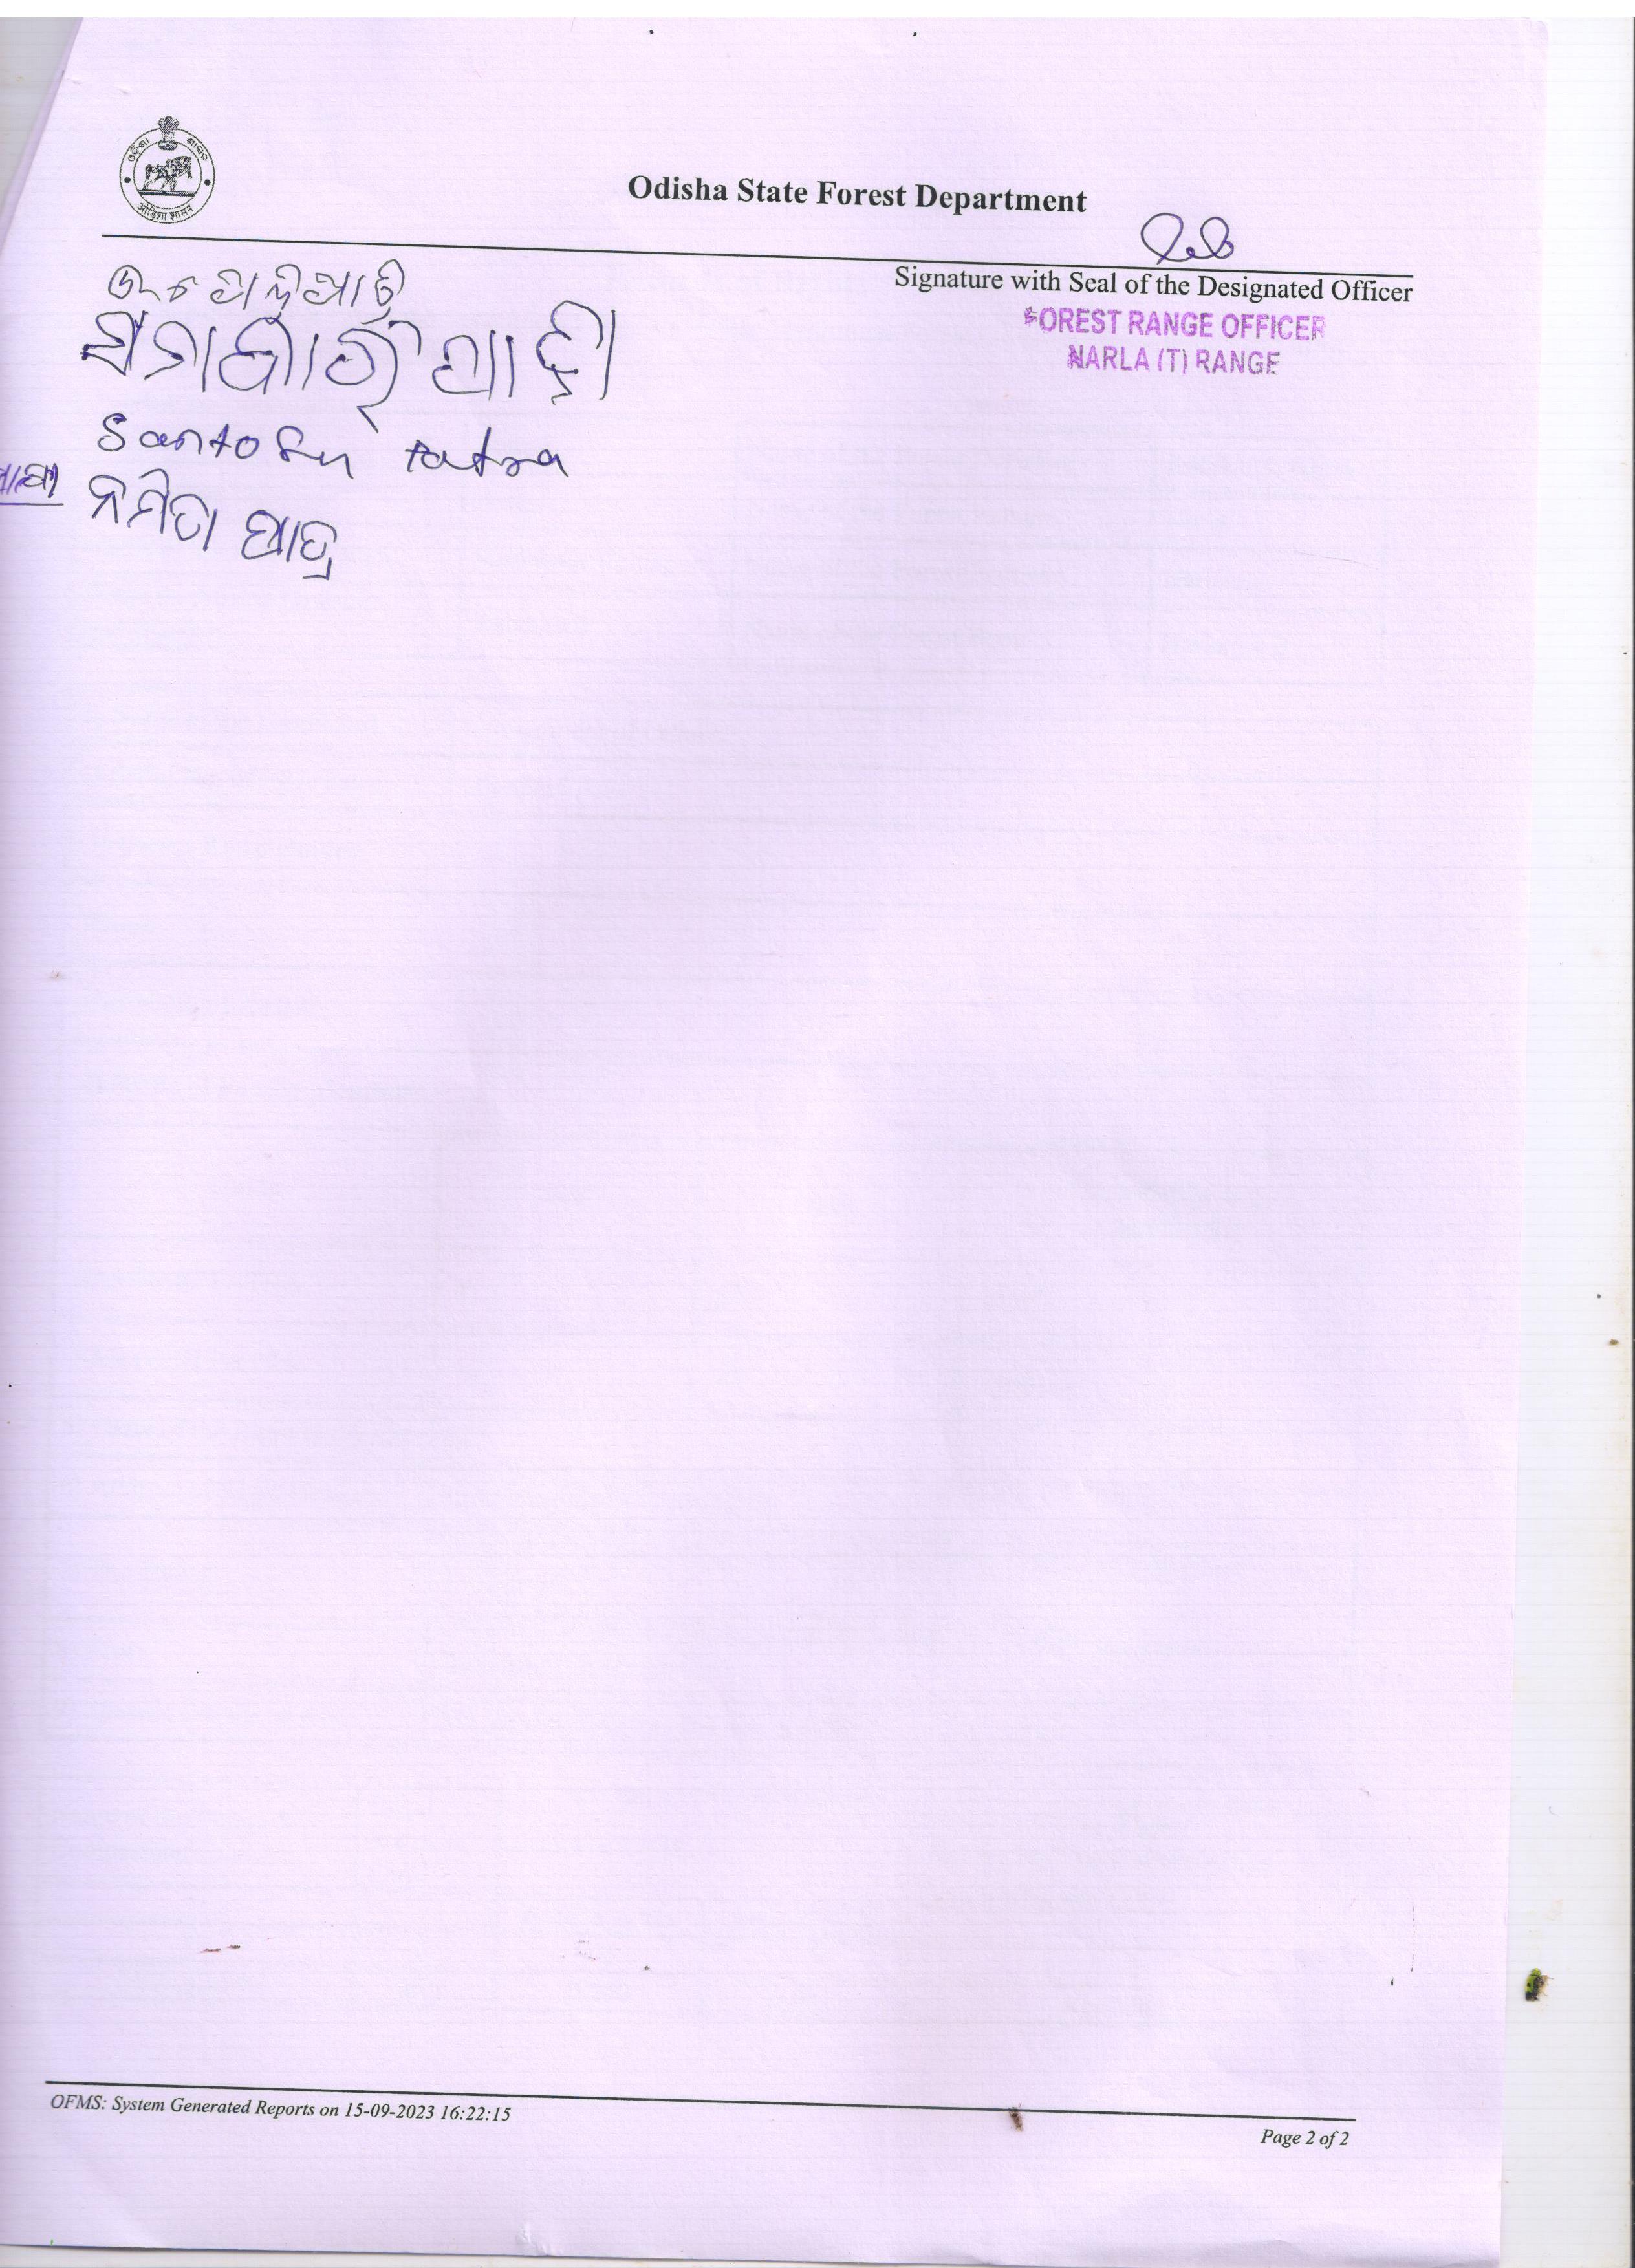 ଓଡ଼ିଶା ଶାସନ
ओड़िशा शासन
Odisha State Forest Department
Signature with Seal of the Designated Officer
FOREST RANGE OFFICER
NARLA (T) RANGE
Santosh Patra
ନମିତା ପାତ୍ର
OFMS: System Generated Reports on 15-09-2023 16:22:15
Page 2 of 2